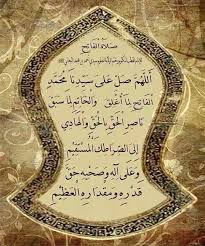 صلاة الفاتح
اللهم صل على سيدنا محمد
الفاتح لما أغلق والخاتم لما سبق
ناصر الحق بالحق والهادي
إلى الصراطك المستقيم
وعلى آله وصحبه حق
قدره ومقداره العظيم